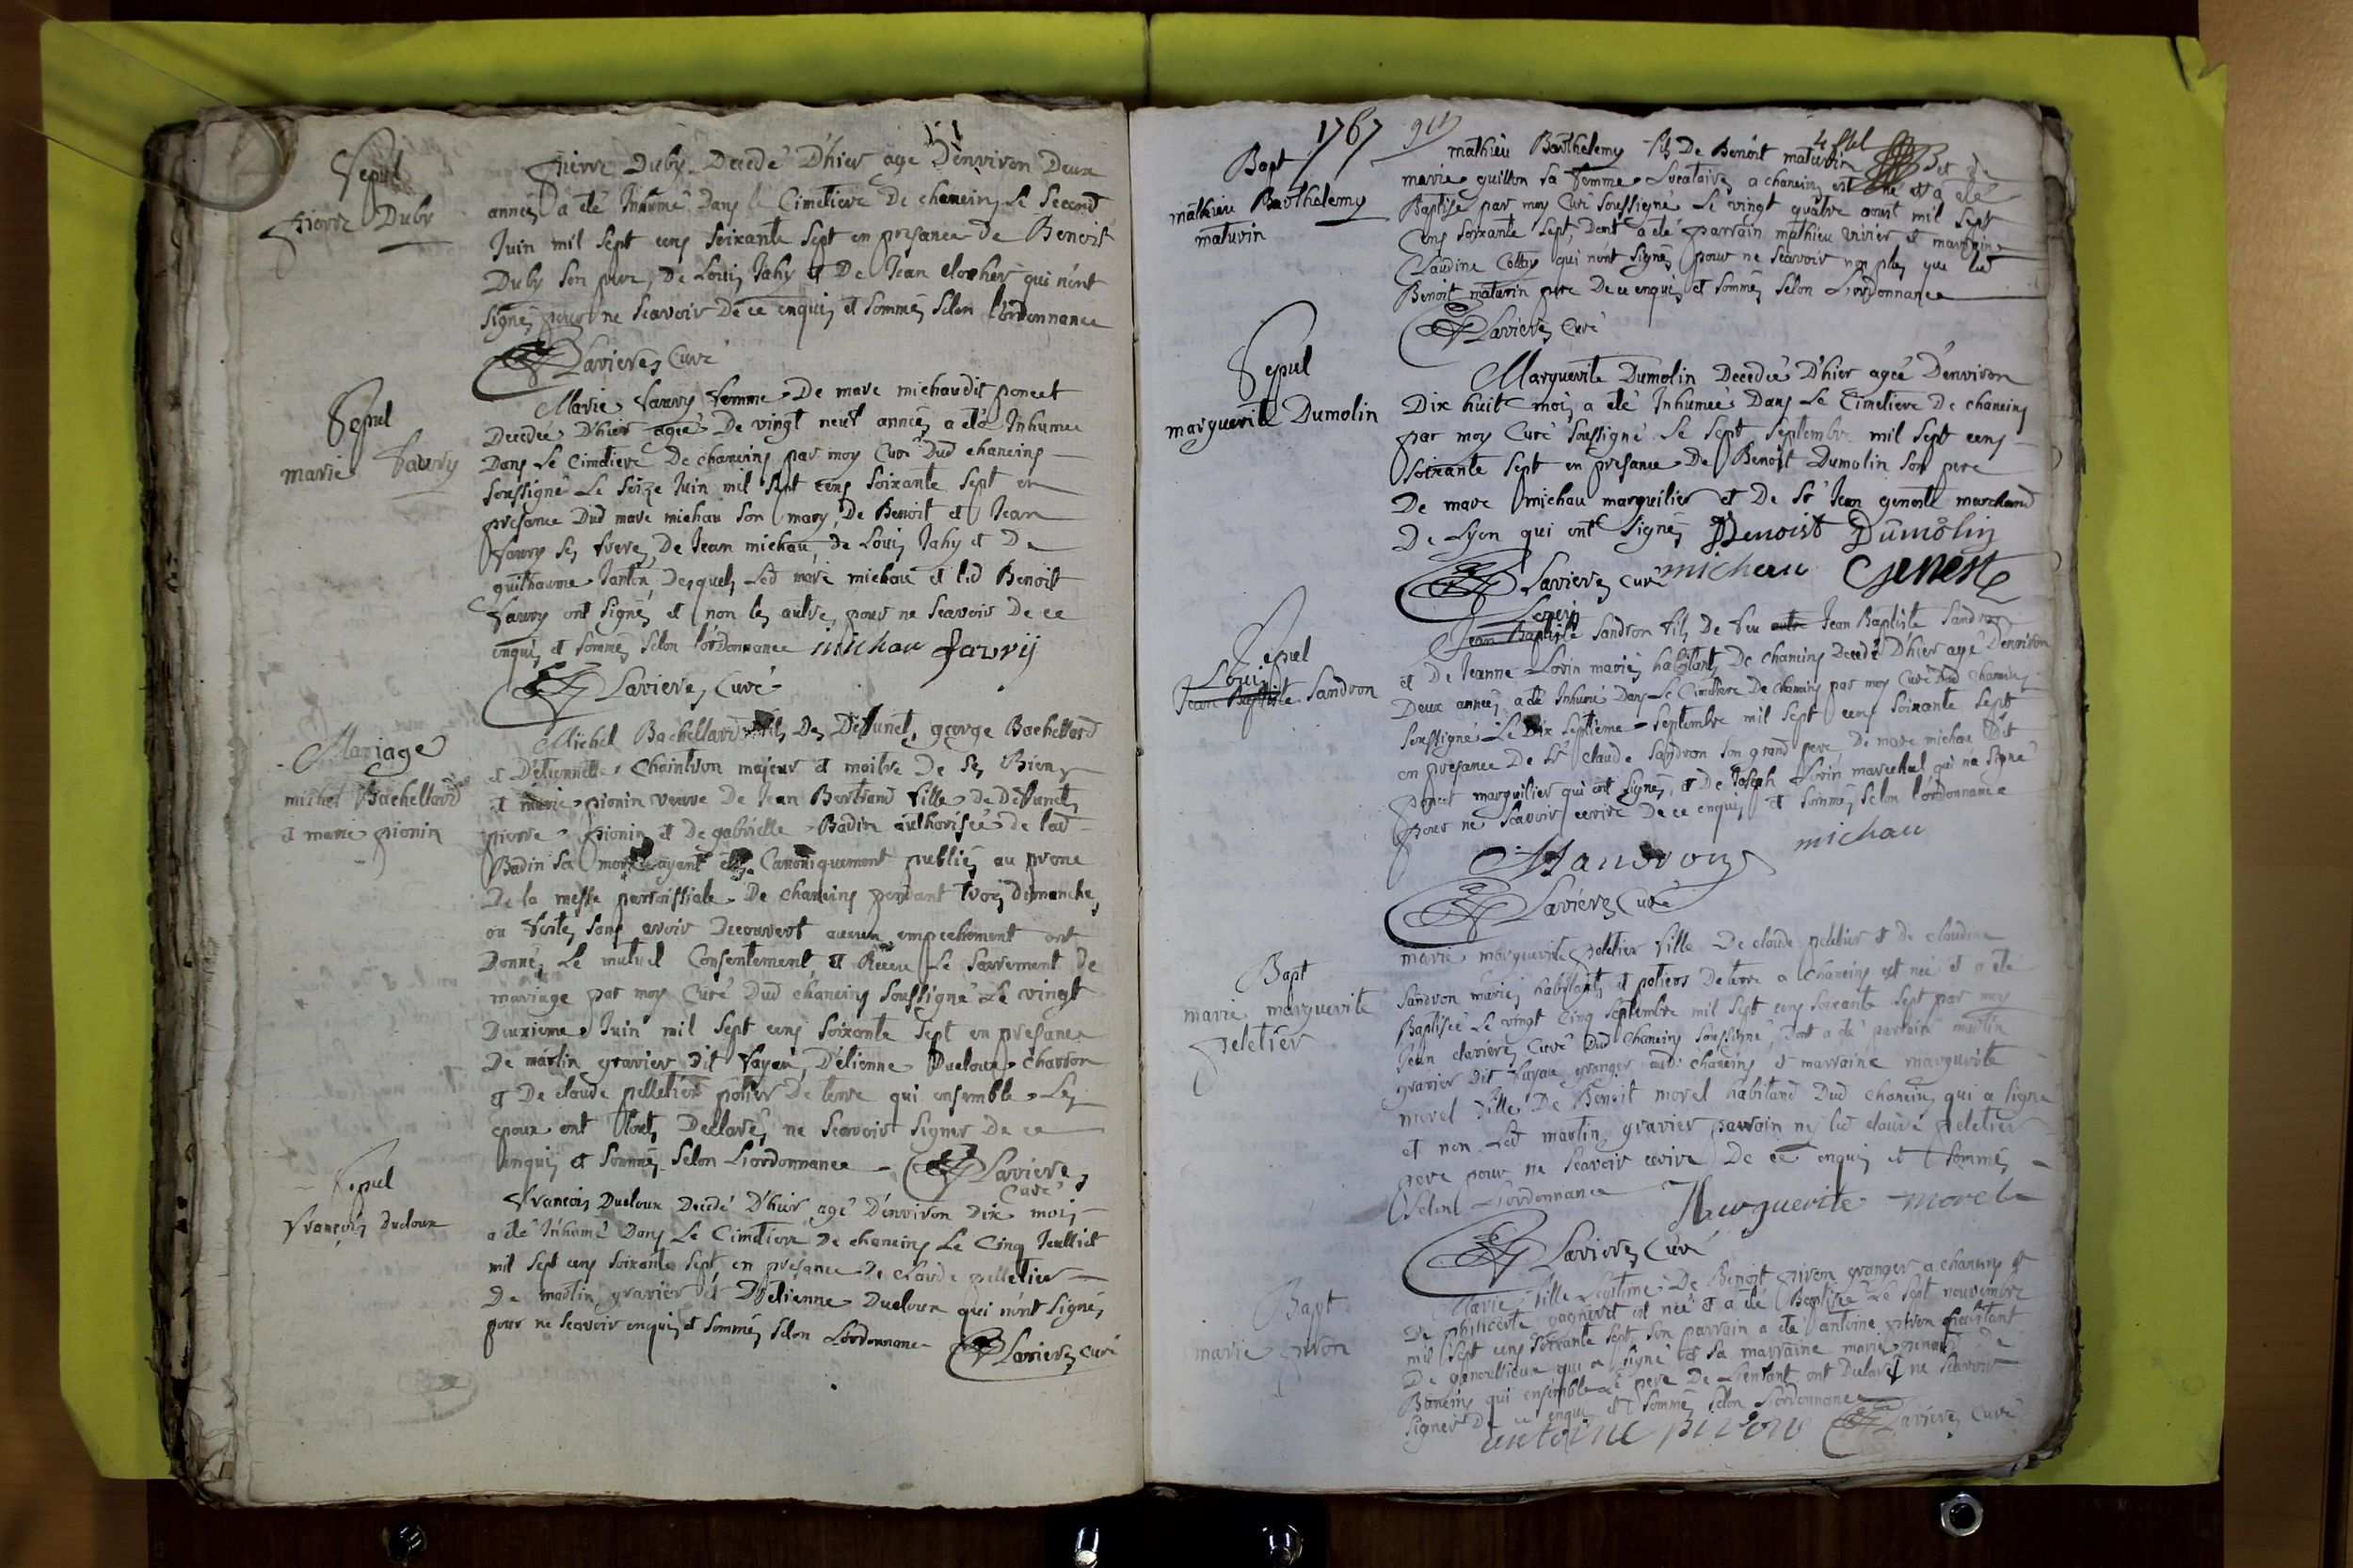 Sepul
pierre Duby
pierre Duby Decedé D'hier agé D'environ Deux
années a été Inhumé Dans le Cimetiere De chaneins le Second
Juin mil Sept cens Soixante Sept en presance de Benoist
Duby Son pere, De Louis Jahy et De Jean clocher qui n'ont
Signés pour ne Scavoir De ce enquis et Sommés Selon l'ordonnance
Lavieres Curé
Sepul
marie Favry
Marie Favry Femme De marc michaudit poncet
Decedée D'hier agée De vingt neuf années a été Inhumée
Dans Le Cimetiere De chaneins par moy Curé Dud chaneins
Soussigné Le Seize Juin mil Sept cens Soixante Sept en
presance Dud marc michau Son mary, De Benoit et Jean
Favry Ses freres, De Jean michau, de Louis Jahy et De
guilhaume Janton, Desquels Led marc michau et led Benoist
Favry ont Signés et non les autres pour ne Scavoir De ce
enquis et Sommés Selon l'ordonnance michau favrij
Lavieres Curé
Mariage
michel Bachellard
et marie pionin
Michel Bachellard fils Des Defuncts george Bachellard
et D'etiennette Chaintron majeur et maitre De Ses Biens
et marie pionin veuve De Jean Bertrand fille De Defunct
pierre pionin et De gabrielle Badin authorisée de lad
Badin Sa mere ayant étés Canoniquement publiés au prone
De la messe parroissiale De Chaneins pendant trois Dimanches
ou festes Sans avoir Decouvert aucun empechement ont
Donnés Le mutuel Consentement et Receu Le Sacrement De
mariage par moy Curé Dud chaneins Soussigné Le vingt
Deuxieme Juin mil Sept cens Soixante Sept en presance
De martin gravier Dit fayau, D'etienne Ducloux charron
et De claude pelletier potier De terre qui ensemble Les
epoux ont tous Declarés ne Scavoir Signer De ce
enquis et Sommés Selon L'ordonnance Lavieres
Curé
Sepul
François Ducloux
François Ducloux Decedé D'hier agé D'environ Dix mois
a été Inhumé Dans Le Cimetiere De chaneins Le Cinq Juillet
mil Sept cens Soixante Sept, en presance De Claude pelletier
De martin gravier et D'etienne Ducloux qui n'ont Signés
pour ne Scavoir enquis et Sommés Selon L'ordonnance Lavieres Curé
1767
Bapt
mathieu Barthelemy
maturin
mathieu Barthelemy fils De Benoit maturin et De
marie guillon Sa femme Locataires a chaneins est né et a été
Baptisé par moy Curé Soussigné Le vingt quatre aoust mil Sept
Cens Soixante Sept, Dont a été parrain mathieu vivier et marraine
Claudine Collay qui n'ont Signés pour ne Scavoir non plus que led
Benoit maturin pere De ce enquis et Sommés Selon L'ordonnance
Lavieres Curé
Sepul
marguerite Dumolin
Marguerite Dumolin Decedée D'hier agée D'environ
Dix huit mois a été Inhumée Dans Le Cimetiere De chaneins
par moy Curé Soussigné Le Sept Septembre mil Sept cens
Soixante Sept en presance De Benoist Dumolin Son pere
De marc michau marguilier et De Sr Jean genoste marchand
De Lyon qui ont Signés Benoist Dumolin
Lavieres Curé michau Geneste
Sepul
Louis
Jean Baptiste Sandron
Louis
Jean Baptiste Sandron fils De feu Jean Baptiste Sandron
et De Jeanne Lorin mariés habitants De chaneins Decedé D'hier agé D'environ
Deux années, a été Inhumé Dans Le Cimetiere De chaneins par moy Curé Dud chaneins
Soussigné Le Dix Septieme Septembre mil Sept cens Soixante Sept
en presance De Sr claude Sandron Son grand pere De marc michau Dit
poncet marguilier qui ont Signés, et De Joseph Lorin marechal qui n'a Signé
pour ne Scavoir ecrire De ce enquis et Sommé Selon l'ordonnance
michau
Sandron
Lavieres Curé
Bapt
marie marguerite
peletier
marie marguerite peletier fille De claude peletier et de claudine
Sandron mariés habitants et potiers De terre a Chaneins est née et a été
Baptisée Le vingt Cinq Septembre mil Sept cens Soixante Sept par moy
Jean clavieres Curé Dud Chaneins Soussigné, Dont a été parrain martin
gravier Dit fayau granger aud chaneins et marraine marguerite
morel fille De Benoit morel habitand Dud chaneins qui a Signé
et non Led martin gravier parrain ny led claude peletier
pere pour ne Scavoir ecrire De ce enquis et Sommés
Selon L'ordonnance Marguerite morel
Lavieres Curé
Bapt
marie pivon
Marie fille Legitime De Benoit pivon granger a chaneins et
De philiberte gagneret est née et a été Baptisée Le Sept nouvembre
mil Sept cens Soixante Sept, Son parrain a été antoine pivon habitant
De genoullieux qui a Signé et Sa marraine marie De
Baneins qui ensemble Le pere De L'enfant ont Declaré ne Scavoir
Signer De ce enquis et Sommés Selon L'ordonnance
antoine pivon Lavieres Curé